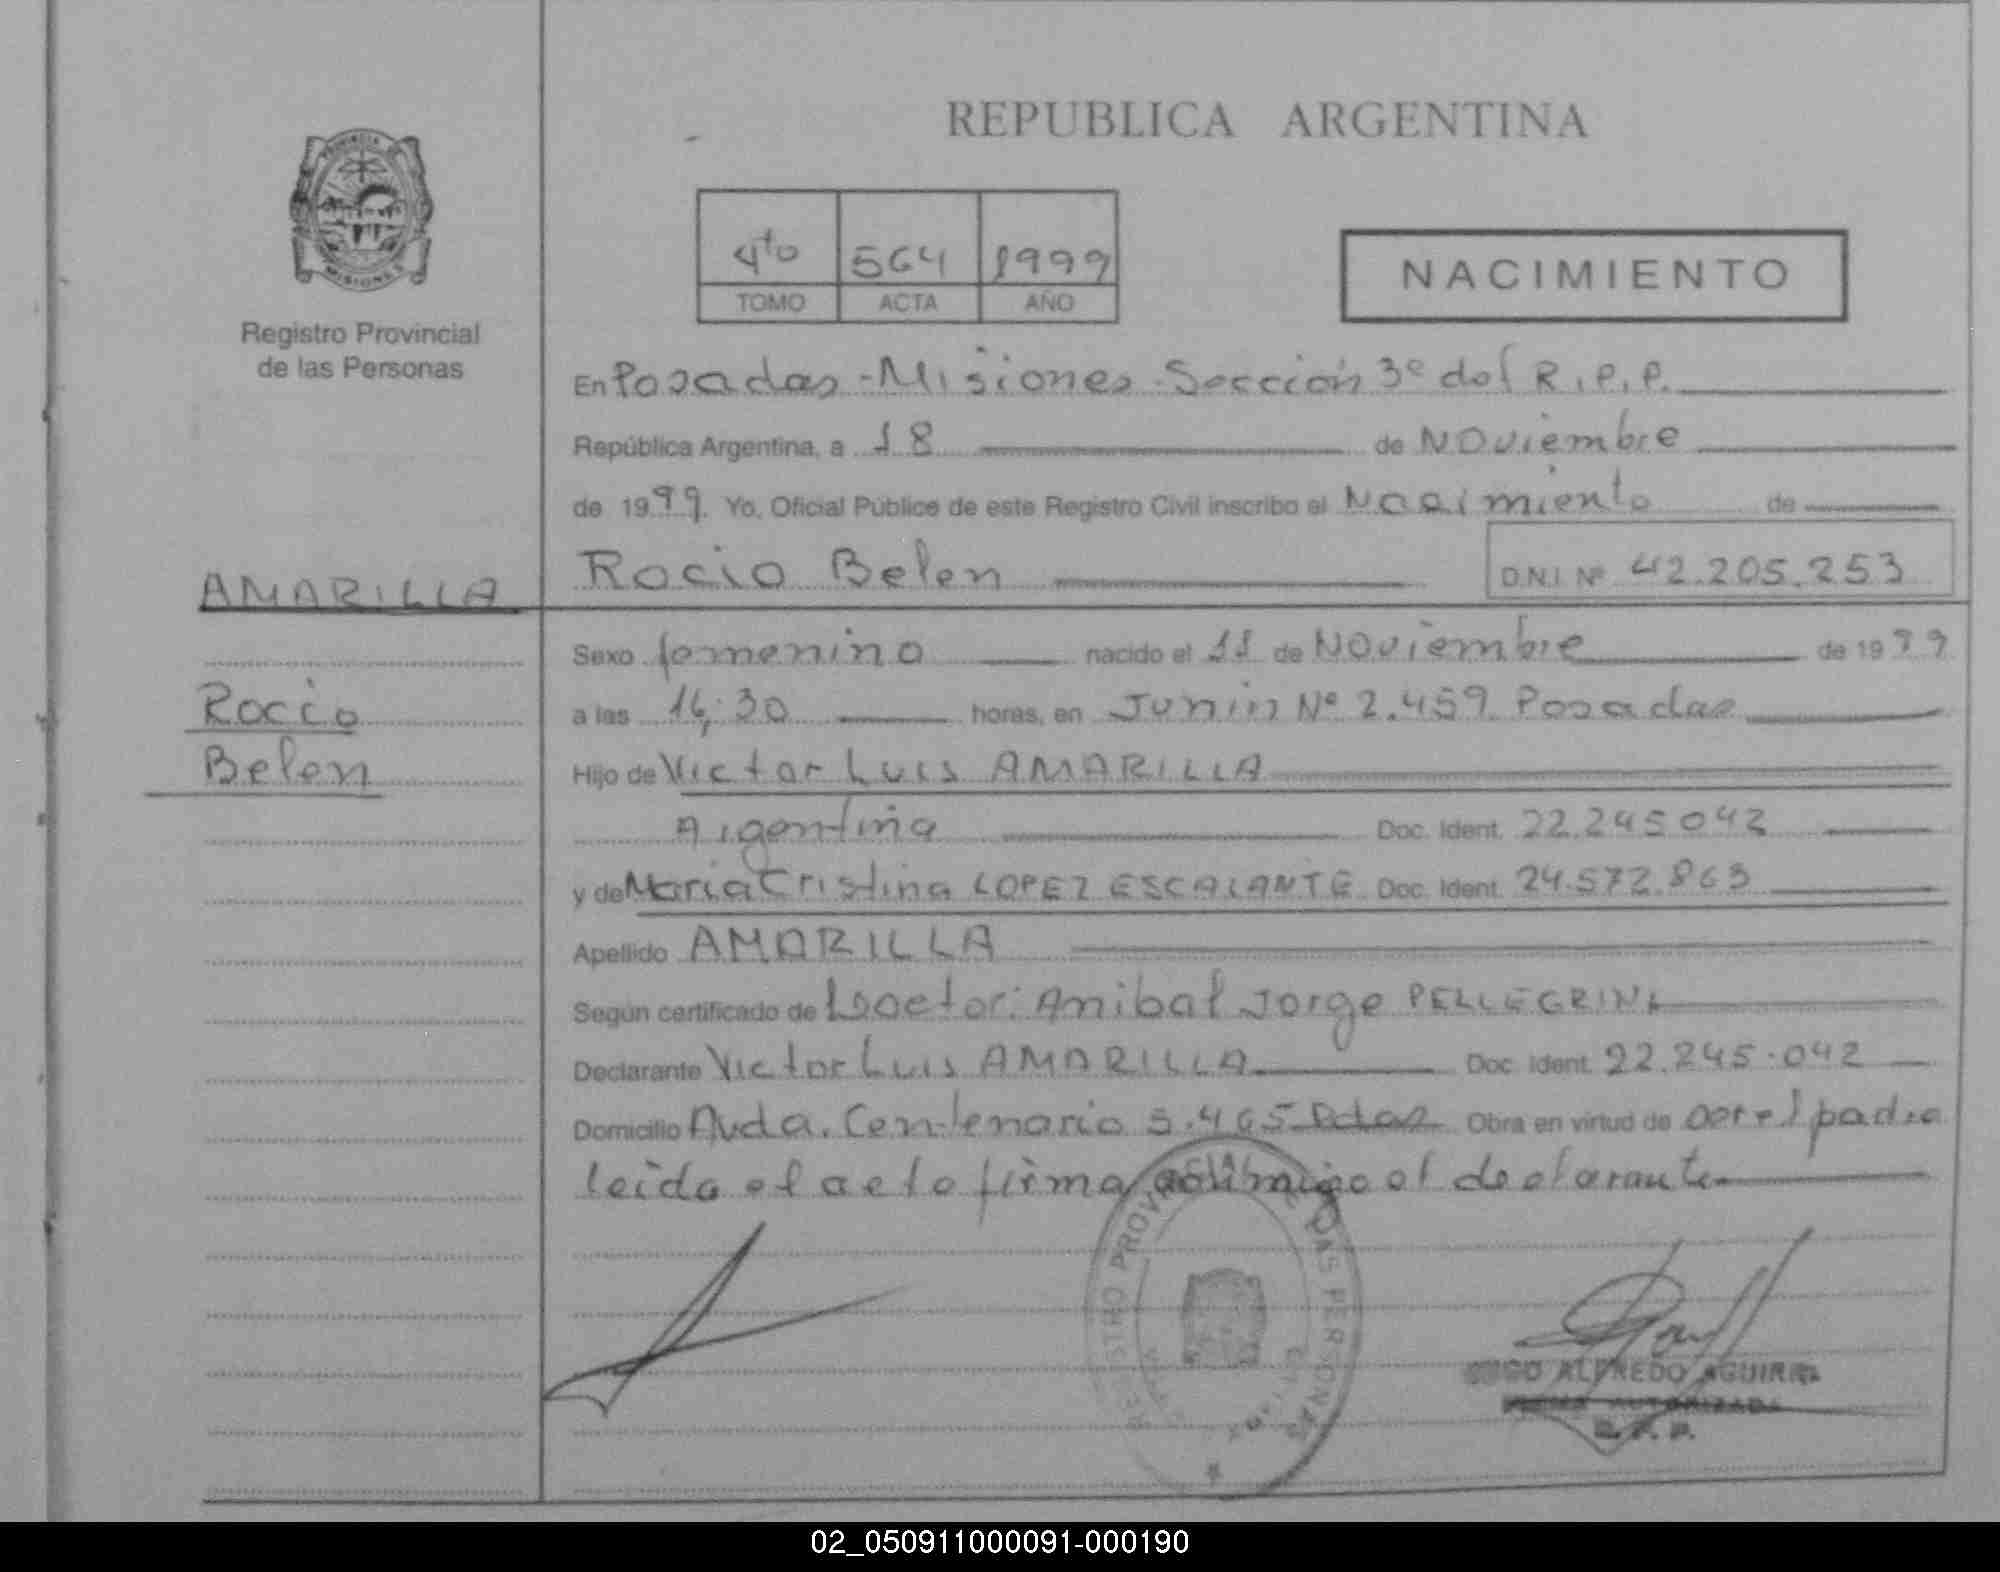 REPUBLICA ARGENTINA
4to 564 1999
TOMO ACTA AÑO
NACIMIENTO
PROVINCIA DE
MISIONES
Registro Provincial
de las Personas
En Posadas - Misiones - Sección 3º del R.P.P.
República Argentina, a 18 de Noviembre
de 1999. Yo, Oficial Público de este Registro Civil inscribo el Nacimiento de
Rocio Belen D.N.I. Nº 42.205.253
AMARILLA
Rocio
Belen
Sexo femenino nacido el 11 de Noviembre de 1999
a las 16:30 horas, en Junin Nº 2.459 Posadas
Hijo de Victor Luis AMARILLA
Argentina Doc. Ident. 22.245042
y de Maria Cristina LOPEZ ESCALANTE Doc. Ident. 24.572.863
Apellido AMARILLA
Según certificado de Doctor: Anibal Jorge PELLEGRINI
Declarante Victor Luis AMARILLA Doc. Ident. 22.245.042
Domicilio Avda. Centenario 5.465 Pdas Obra en virtud de ser el padre
leida el acto firma conmigo el declarante
REGISTRO PROVINCIAL DE LAS PERSONAS
ALFREDO AGUIRRE
FIRMA AUTORIZADA
R. P. P.
02_050911000091-000190